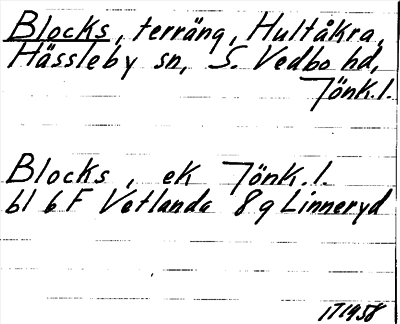 Blocks, terräng, Hultåkra,
Hässleby sn, S. Vedbo hd,
Jönk.l.
Blocks, ek Jönk.l.
bl 6F Vetlanda 8g Linneryd
IT1958